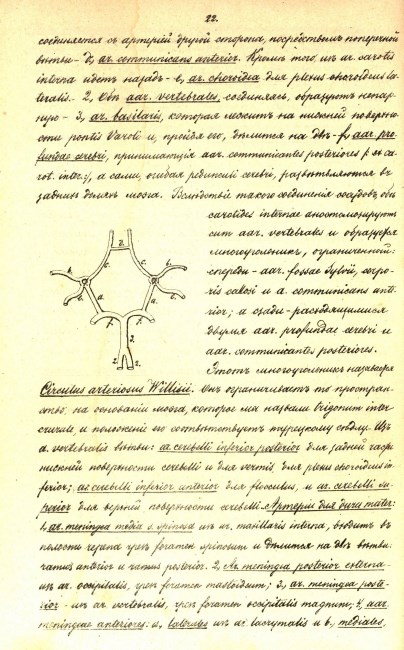 22.
соединяется съ артеріей другой стороны, посредствомъ поперечной
вѣтви - d, ar. communicans anterior. Кромѣ того, изъ ar. carotis
interna идетъ назадъ - e, ar. choroidea для plexus choroideus la-
teralis. 2, Обѣ aar. vertebrales, соединяясь, образуютъ непар-
ную - 3, ar. basilaris, которая лежитъ на нижней поверхно-
сти pontis Varoli и, пройдя его, дѣлится на двѣ - f, aar. pro-
fundae cerebri, принимающія aar. communicantes posteriores
rot. inter.), а сами, огибая pedunculi cerebri, развѣтвляются въ
заднихъ доляхъ мозга. Вслѣдствіе такого соединенія сосудовъ, обѣ
carotides internae анастомозируютъ
aar. vertebrales и образуется
многоугольникъ, ограниченный:
спереди - aar. fossae Sylvii, corpo-
ris callosi и a. communicans ante-
rior; а сзади - расходящимися
двумя aar. profundae cerebri и
aar. communicantes posteriores.
Этотъ многоугольникъ называется
d.
c. c.
b. b.
a. a.
e. e.
f. f.
3.
2. 2.
Circulus arteriosus Willisii. Онъ ограничиваетъ то простран-
ство на основаніи мозга, которое мы назвали trigonum inter
crurale и положеніе его соотвѣтствуетъ турецкому сѣдлу. Изъ
a. vertebralis вѣтви: ar. cerebelli inferior posterior для задней части
нижней поверхности cerebelli и для vermis для plexus choroideus in-
ferior; ar. cerebelli inferior anterior для flocculus, и ar. cerebelli su-
perior для верхней поверхности cerebelli. Артеріи для dura mater:
1, ar. meningea media s. spinosa изъ ar. maxillaris interna, входитъ въ
полость черепа чрезъ foramen spinosum и дѣлится на двѣ вѣтви:
ramus anterior и ramus posterior. 2, Ar. meningea posterior externa -
изъ ar. occipitalis, чрезъ foramen mastoideum; 3, ar. meningea poste-
rior - изъ ar. vertebralis, чрезъ foramen occipitalis magnum; 4, aar.
meningeae anteriores: a, laterales изъ ar. lacrymalis и b, mediales,